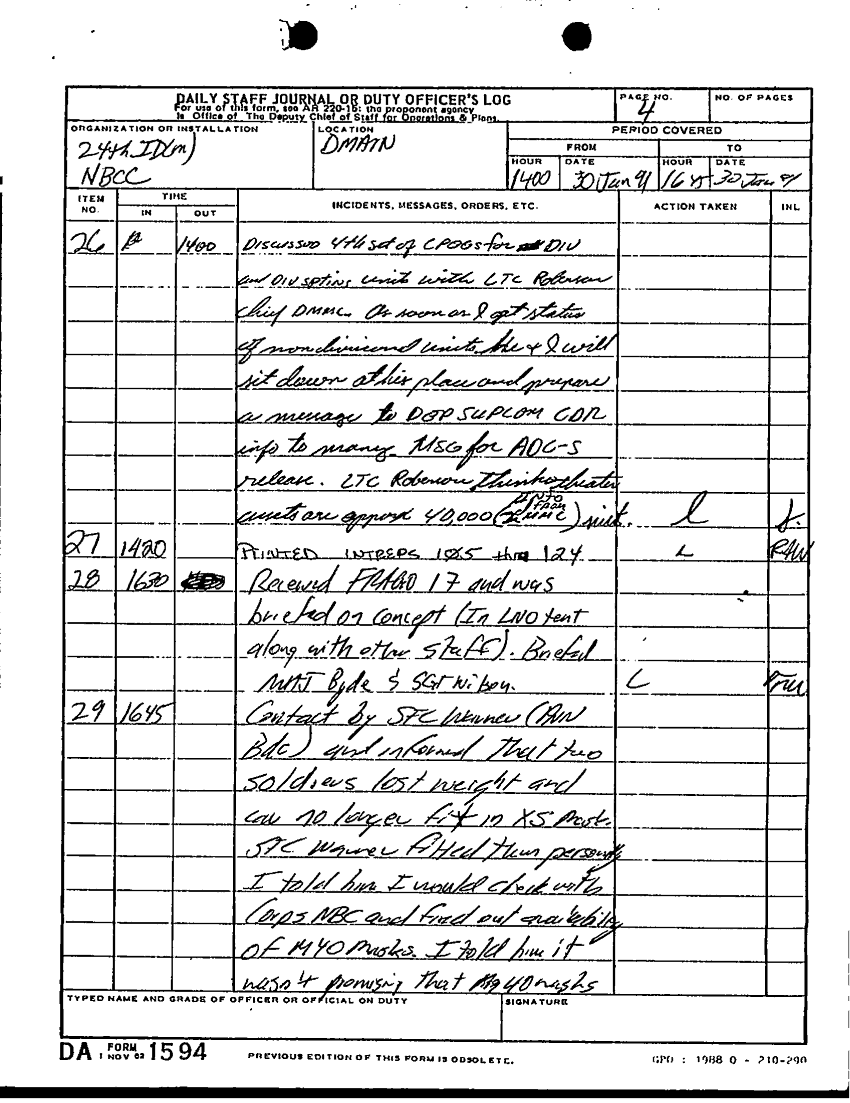 DAILY STAFF JOURNAL OR DUTY OFFICER'S LOG
For use of this form, see AR 220-15; the proponent agency
is Office of The Deputy Chief of Staff for Operations & Plans.
PAGE NO.
4
NO. OF PAGES
ORGANIZATION OR INSTALLATION
24th ID(m)
NBCC
LOCATION
DMAIN
PERIOD COVERED
FROM
TO
HOUR DATE HOUR DATE
1400 30 Jan 91 30 Jan 91
ITEM NO.
TIME
IN OUT
INCIDENTS, MESSAGES, ORDERS, ETC.
ACTION TAKEN
INL
26 1400 Discussed 4th set of CPOGs for DIV
and DIV spting units with LTC Roberson
chief DMMC. As soon as I get status
of nondivisional units, he & I will
sit down at his place and prepare
a message to DEP SUPCOM CDR
info to many. MSG for ADC-S
release. LTC Roberson thinks theater
assets are approx 40,000 (INFO FROM MMC)
27 1420 PRINTED INTREPS 105 thru 124 L RAW
28 1630 Received FRAGO 17 and was
briefed on concept (In LNO tent
along with other staff). Briefed
MAJ & SGT Wilson. L
29 1645 Contact by SFC Wanner (AVN
Bde) and informed that two
soldiers lost weight and
can no longer fit in XS Mask.
SFC Wanner fitted them personally
I told him I would check with
Corps NBC and find out availability
of M40 Masks. I told him it
wasn't promising that M40 masks
TYPED NAME AND GRADE OF OFFICER OR OFFICIAL ON DUTY
SIGNATURE
DA FORM 1 NOV 62 1594
PREVIOUS EDITION OF THIS FORM IS OBSOLETE.
GPO : 1988 O - 210-290